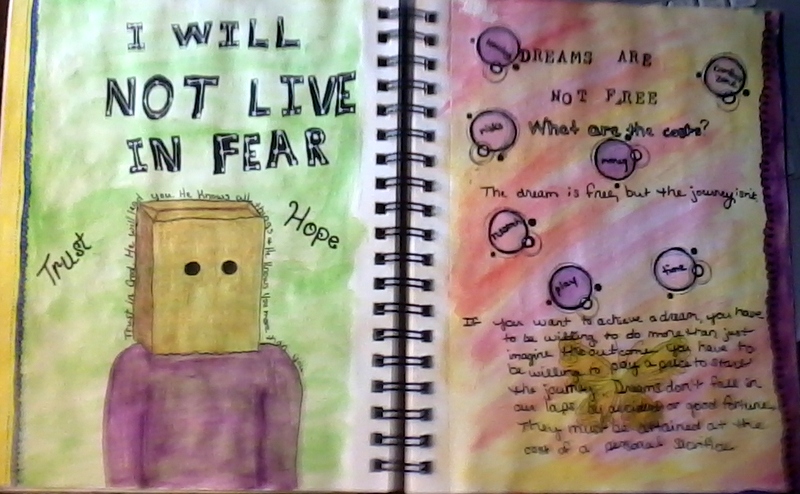 I WILL
NOT LIVE
IN FEAR
Trust
Hope
Trust in God He will lead you. He knows all things & He knows you more than you
DREAMS ARE
NOT FREE
What are the costs?
Comfort Zone
risks
money
The dream is free, but the journey isn't
play
time
If you want to achieve a dream, you have
to be willing to do more than just
imagine the outcome. You have to
be willing to pay a price to start
the journey. Dreams don't fall in
our laps by accident or good fortune.
They must be attained at the
cost of a personal sacrifice.